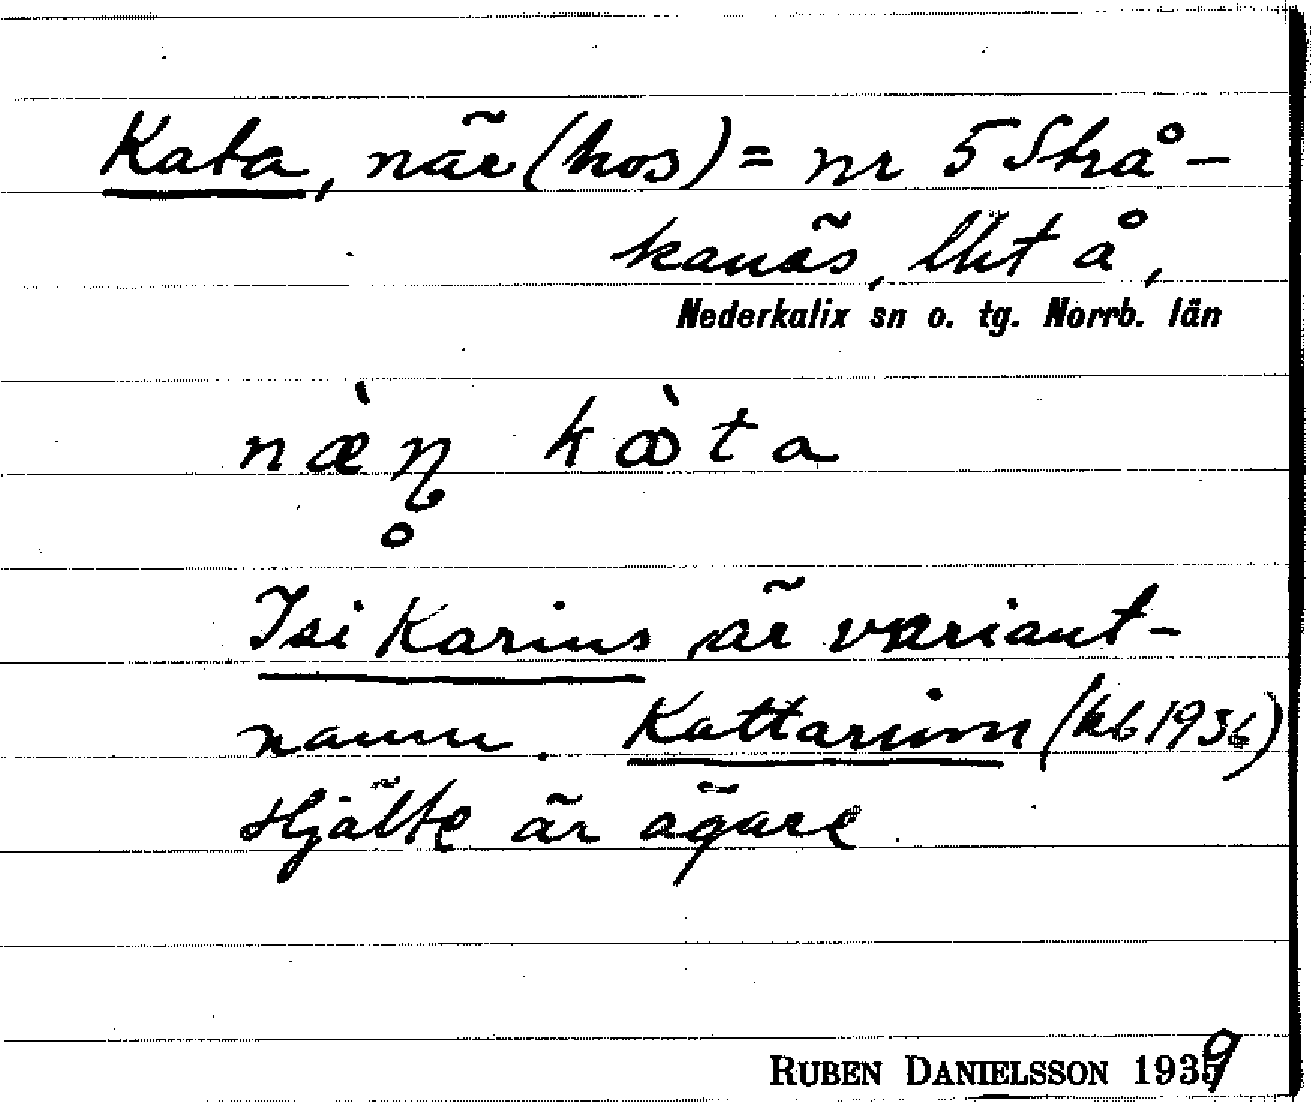 Kata, när (hos) = nr 5 Strå-
kanäs, litt å,
Nederkalix sn o. tg. Norrb. län
næ̀n̥ kàta
Isi Karius är variant-
namn. Kattarinn (kb 1936)
Hjälte är ägare
RUBEN DANIELSSON 1939